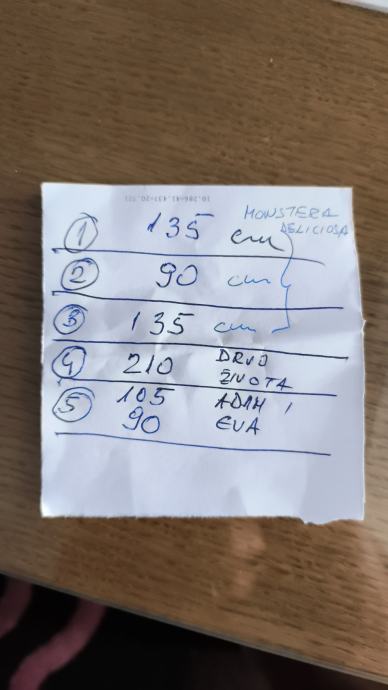 MONSTERA
DELICIOSA
1 135 cm
2 90 cm
3 135 cm
4 210 DRVO
ŽIVOTA
5 105 ADAM I
90 EVA